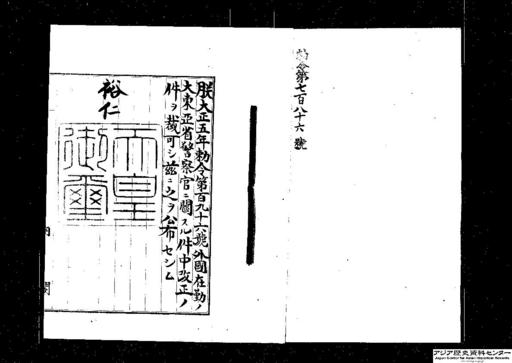 勅令第七百八十六號
朕大正五年勅令第百九十六號外國在勤ノ
大東亞省警察官ニ關スル件中改正ノ
件ヲ裁可シ茲ニ之ヲ公布セシム
裕仁
天皇
御璽
内
閣
アジア歴史資料センター
Japan Center for Asian Historical Records